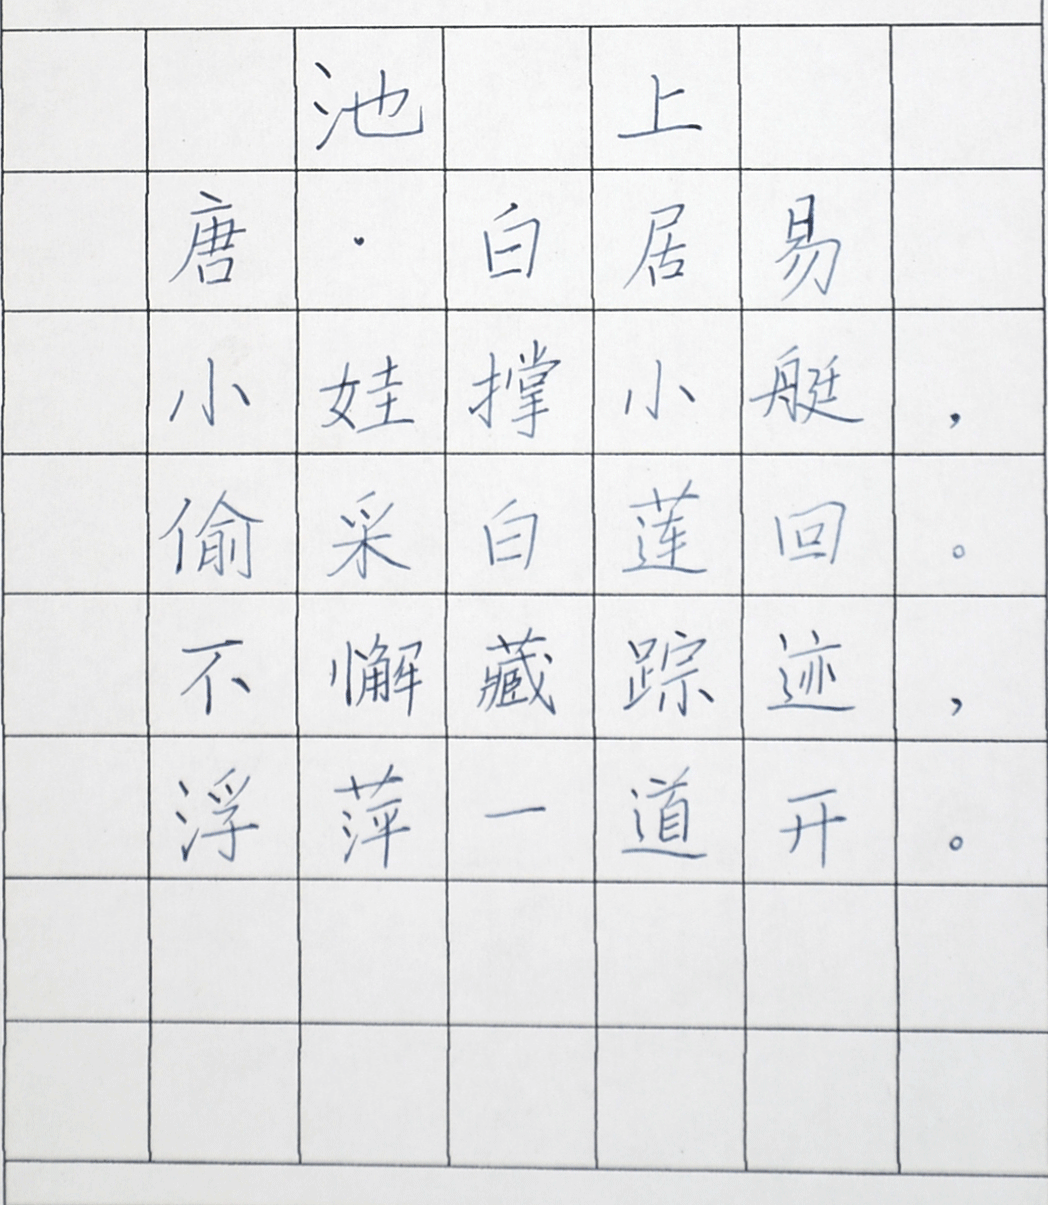 池上
唐·白居易
小娃撑小艇，
偷采白莲回。
不懈藏踪迹，
浮萍一道开。